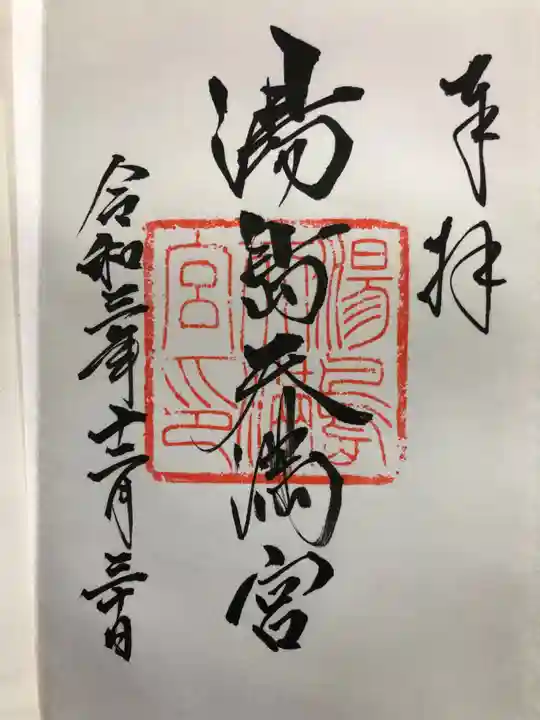 奉拝
湯島天満宮
湯島天満宮印
令和三年十二月三十日